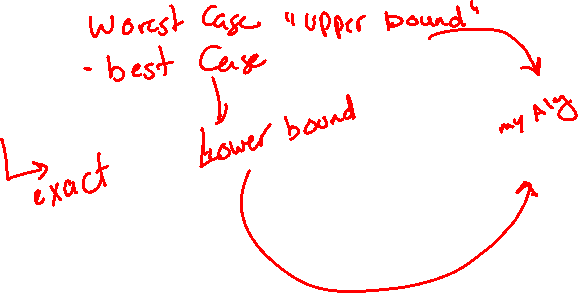 Worst Case "upper bound"
- best Case
Lower bound
my Alg
exact